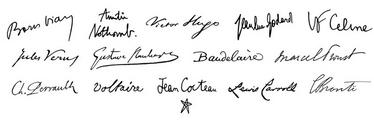 Boris Vian Amélie Nothomb. Victor Hugo Paulina Godard LF Celine
Jules Verne Gustave Flaubert Baudelaire Marcel Proust
Ch. Perrault Voltaire Jean Cocteau Lewis Carroll CBrontë